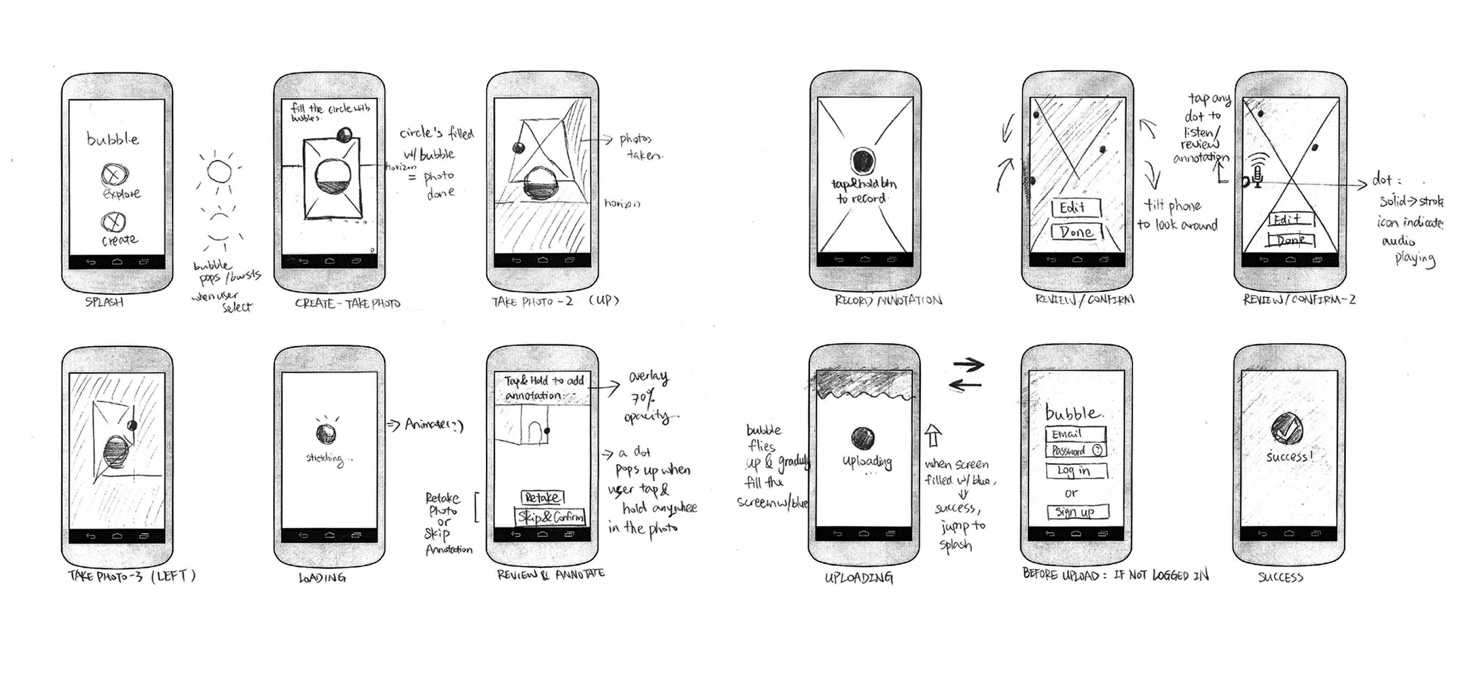 bubble
explore
create
SPLASH
bubble
pops / bursts
when user
select
fill the circle with
bubbles
horizon
circle's filled
w/ bubble
= photo
done
CREATE - TAKE PHOTO
photos
taken
horizon
TAKE PHOTO - 2 (UP)
tap & hold btn
to record
RECORD ANNOTATION
Edit
Done
tilt phone
to look around
REVIEW / CONFIRM
tap any
dot to
listen/
review
annotation
Edit
Done
dot :
solid → stroke
icon indicates
audio
playing
REVIEW / CONFIRM - 2
TAKE PHOTO - 3 (LEFT)
stitching...
Animate! :)
LOADING
Tap & Hold to add
annotation...
overlay
70%
opacity
a dot
pops up when
user tap &
hold anywhere
in the photo
Retake
Photo
or
Skip
Annotation
Retake
Skip & Confirm
REVIEW & ANNOTATE
bubble
flies
up & gradully
fill the
screen w/ blue
uploading...
when screen
filled w/ blue,
success,
jump to
splash
UPLOADING
bubble.
Email
Password ?
Log in
or
Sign up
BEFORE UPLOAD : IF NOT LOGGED IN
success!
SUCCESS